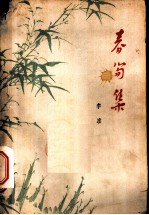 春笋集
李凌